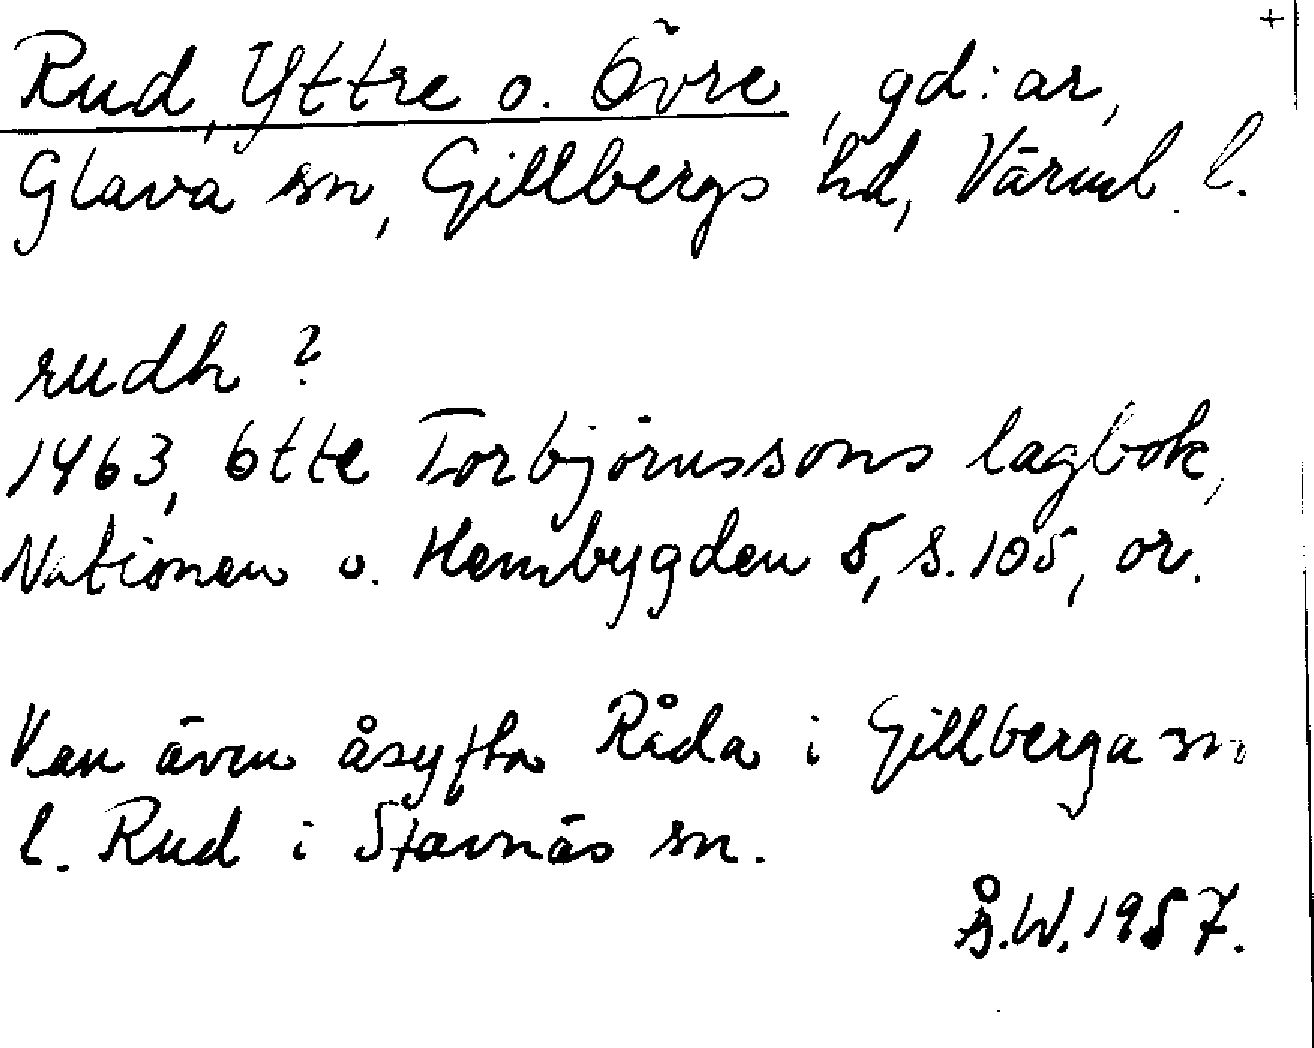 +
Rud, Yttre o. Övre, gd:ar,
Glava sn, Gillbergs hd, Värml. l.
rudh ?
1463, Otte Torbjörnssons lagbok,
Nationen o. Hembygden 5, s. 105, or.
Kan även åsyfta Råda i Gillberga sn
l. Rud i Stavnäs sn.
Å.W. 1957.